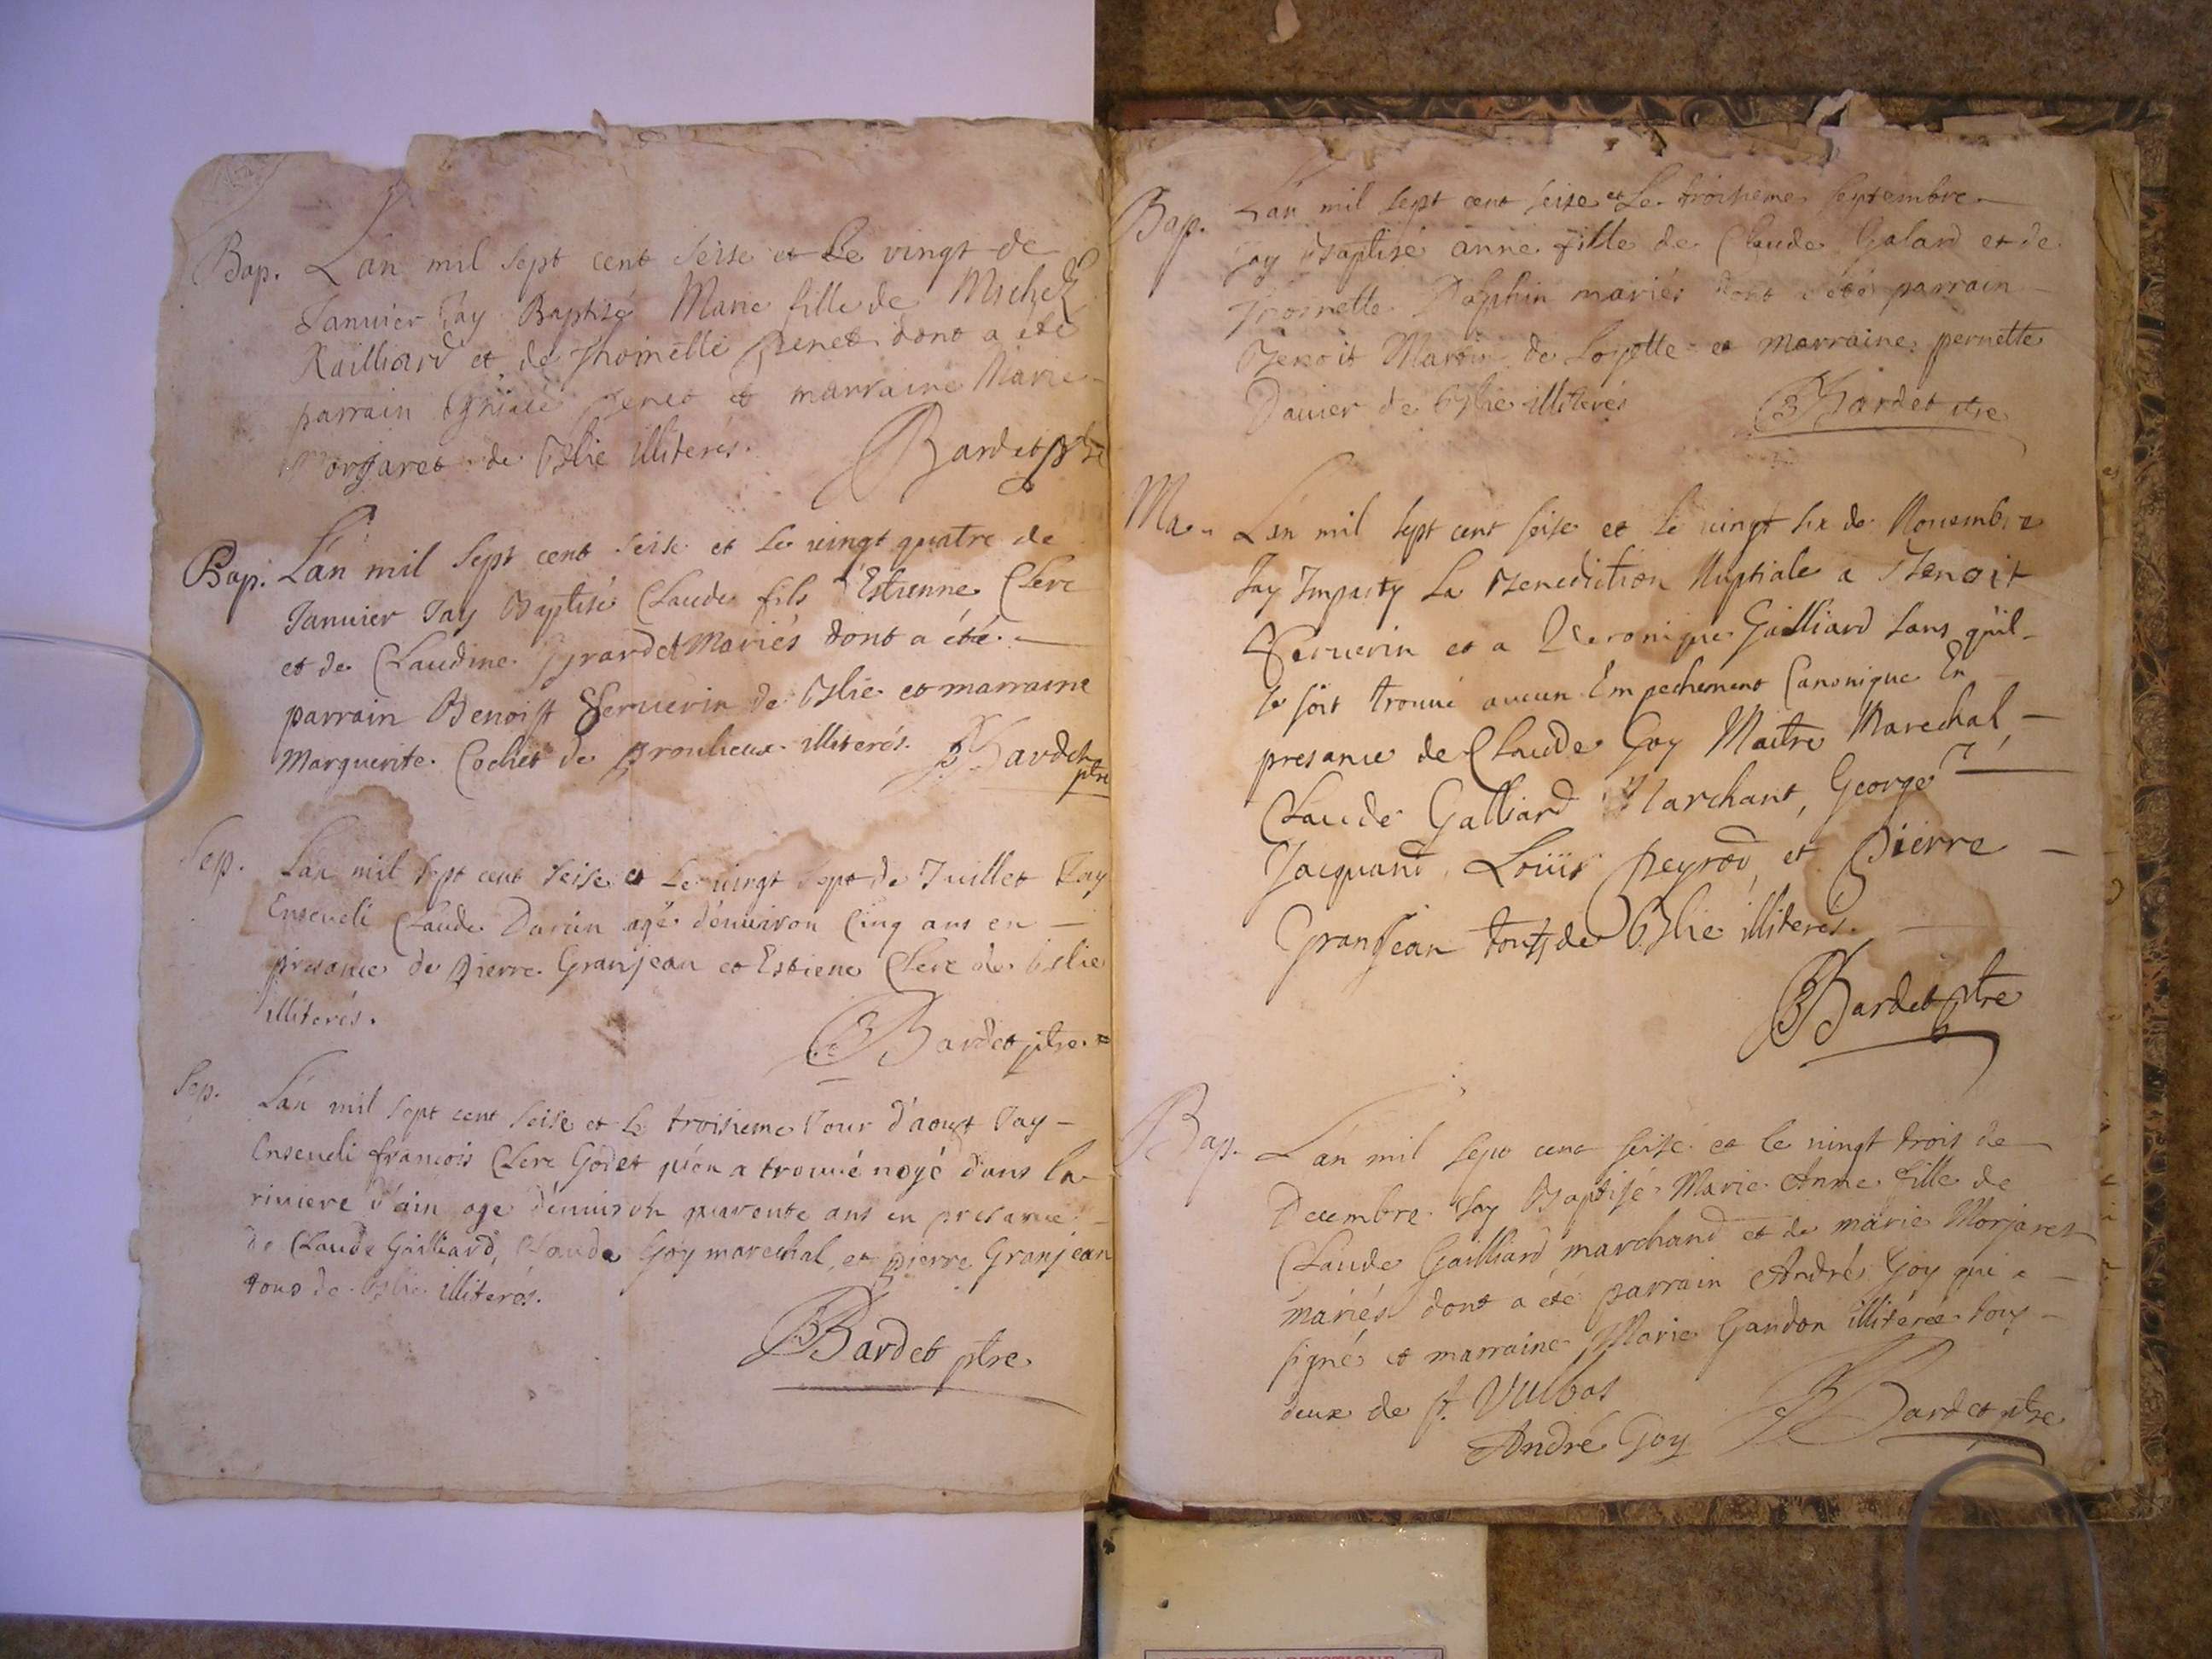 Bap. L'an mil sept cent seise et le vingt de
Januier J'ay Baptisé Marie fille de Michel
Railliard et de Thoinette Genet dont a été
parrain Genet et marraine Marie
Morjaret de Blie illiterés. Bardet ptre
Bap. L'an mil sept cent seise et le uingt quatre de
Januier Jay Baptisé Claude fils d'Estienne Clere
et de Claudine Girardet Mariés dont a été
parrain Benoist Seruerin de Blie et marraine
Marguerite Cochet de proulieux illiterés. B Bardet
ptre
Sep. L'an mil sept cent seise et Le uingt sept de Juillet Jay
Enseueli Claude Dauin agé d'enuiron Cinq ans en
presance de pierre Granjean et Estiene Clere de Blie
illiterés.
B Bardet ptre
Sep. L'an mil sept cent seise et le troisieme Jour d'aoust Jay
Enseueli francois Clere Godet qu'on a trouué noyé dans la
riuiere d'ain age d'enuiron quarente ans en presance
de Claude Gailliard, Claude Goy marechal, et pierre Granjean
tous de Blie illiterés.
B Bardet ptre
Bap. L'an mil sept cent seise et Le troisieme septembre
Jay Baptisé anne fille de Claude Galard et de
Thoinette Dalphin mariés dont a été parrain
Benoit Martin de Loyette et marraine pernette
Dauier de Blie illiterés B Bardet ptre
Ma. L'an mil sept cent seise et le uingt six de Nouembre
Jay Imparty La Benediction Nuptiale a Benoit
Seruerin et a Veronique Gailliard sans qu'il
se soit trouué aucun Empechement Canonique En
presance de Claude Goy Maitre Marechal,
Claude Galliard Marchant, George
Jacquand, Loüis peyrod, et pierre
Granjean touts de Blie illiterés.
B Bardet ptre
Bap. L'an mil sept cent seise et le uingt trois de
Decembre Jay Baptisé Marie Anne fille de
Claude Gailliard marchand et de marie Morjaret
mariés dont a été parrain André Goy qui a
signé et marraine Marie Gandon illiterée touts
deux de St. Vulbas
André Goy B Bardet ptre